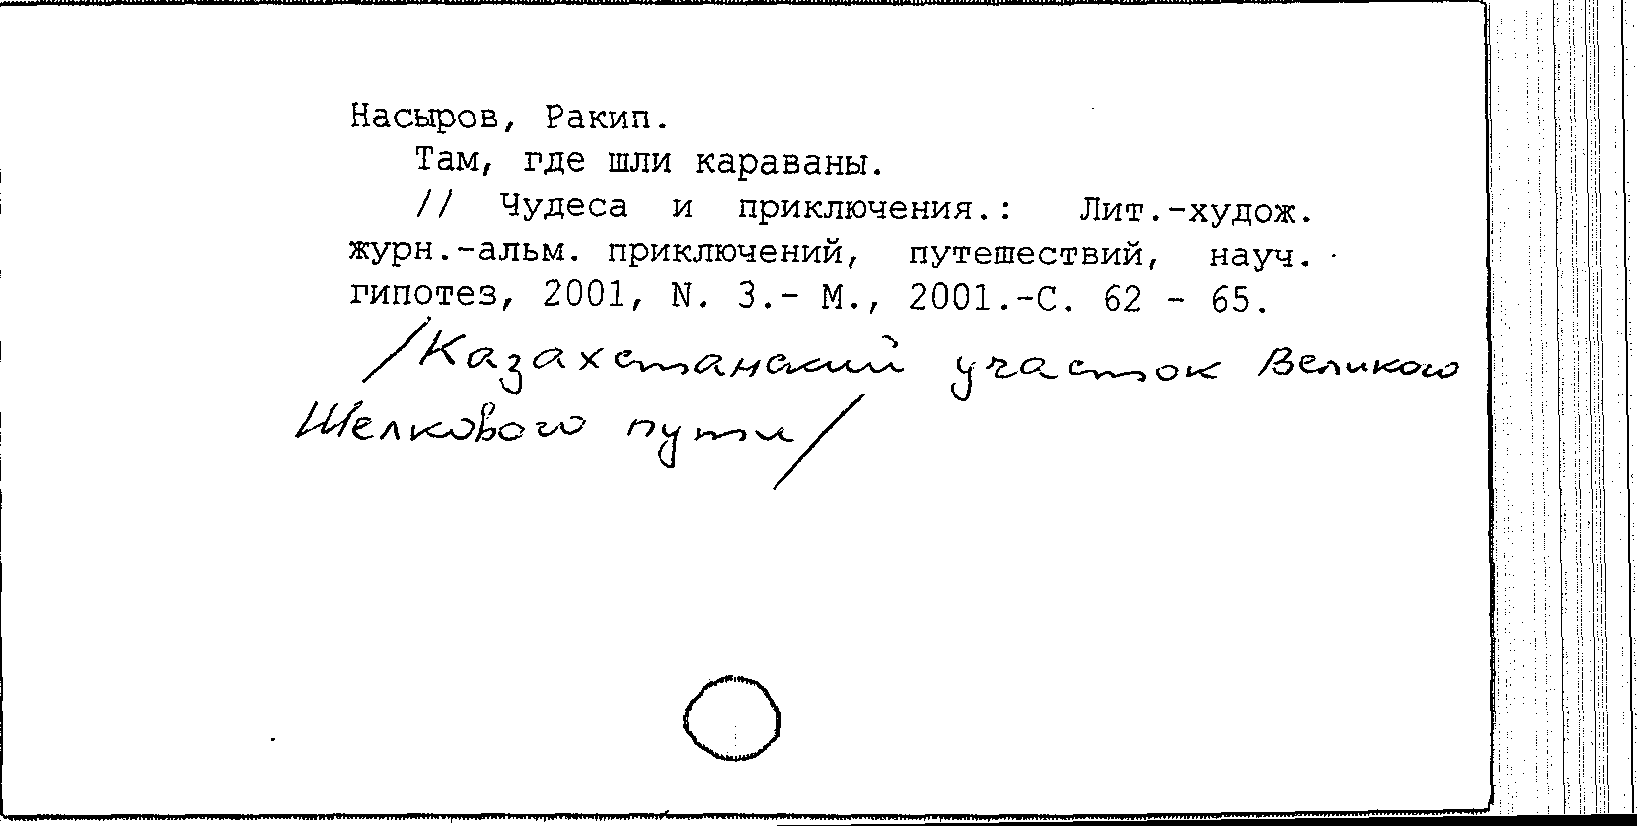 Насыров, Ракип.
Там, где шли караваны.
// Чудеса и приключения.: Лит.-худож.
журн.-альм. приключений, путешествий, науч.
гипотез, 2001, N. 3.- М., 2001.-С. 62 - 65.
/Казахстанский участок Великого
Шелкового пути/